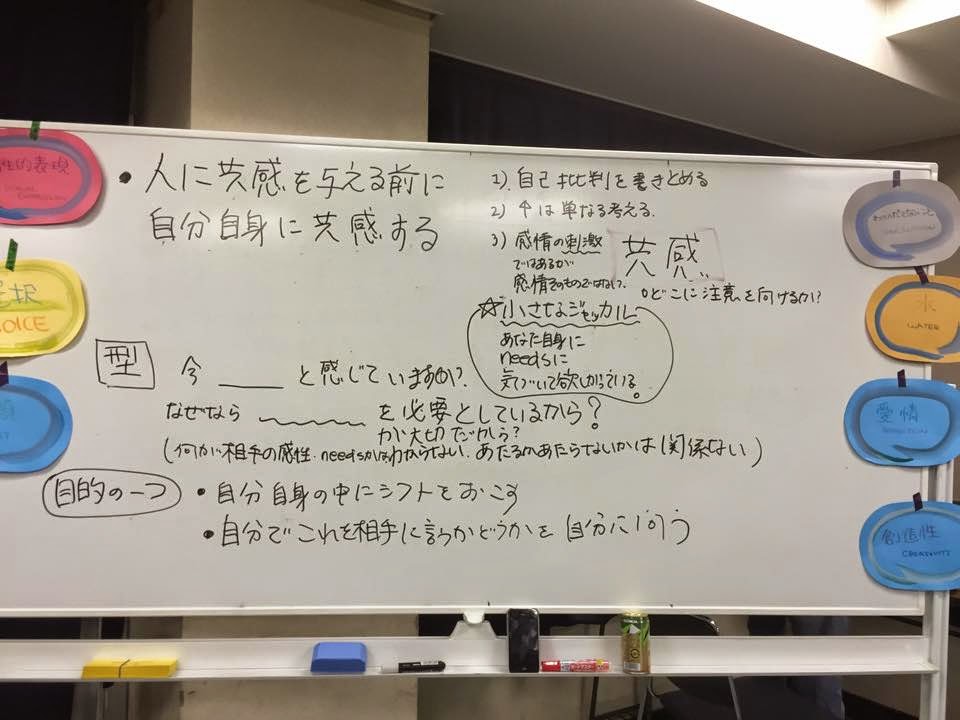 ・人に共感を与える前に
自分自身に共感する
1) 自己批判を書きとめる
2) 々は単なる考える.
3) 感情の刺激
ではあるが
感情そのものではない.
共感
どこに注意を向けるか?
☆小さなジャッカル
あなた自身に
needsに
気づいて欲しがっている。
型
今 ____ と感じていますか?
なぜなら ～～～ を必要としているから?
が大切だから?
(何が相手の感性・needsかはわからない. あたるかあたらないかは関係ない)
目的の一つ
・自分自身の中にシフトをおこす
・自分でこれを相手に言うかどうかを自分に問う
性的表現
EXPRESSION
選択
CHOICE
水
WATER
愛情
創造性
CREATIVITY